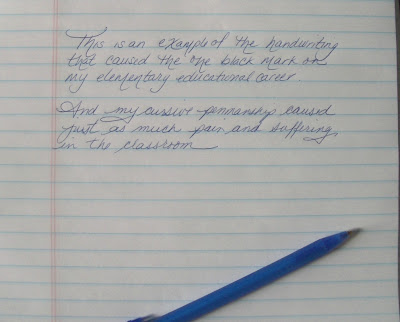 This is an example of the handwriting
that caused the one black mark on
my elementary educational career.
And my cursive penmanship caused
just as much pain and suffering
in the classroom